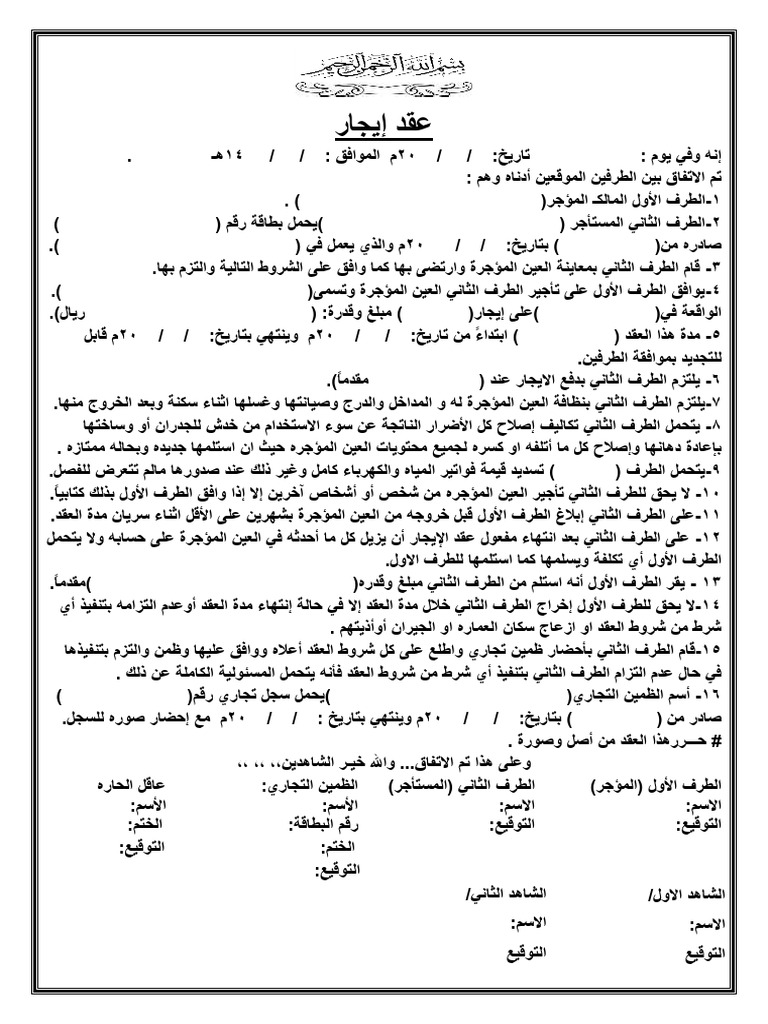 بسم الله الرحمن الرحيم
عقد إيجار
إنه وفي يوم : تاريخ: / / ٢٠م الموافق : / / ١٤هـ .
تم الاتفاق بين الطرفين الموقعين أدناه وهم :
١-الطرف الأول المالك المؤجر( ) .
٢-الطرف الثاني المستأجر ( )يحمل بطاقة رقم ( )
صادره من( ) بتاريخ: / / ٢٠م والذي يعمل في ( ).
٣- قام الطرف الثاني بمعاينة العين المؤجرة وارتضى بها كما وافق على الشروط التالية والتزم بها.
٤-يوافق الطرف الأول على تأجير الطرف الثاني العين المؤجرة وتسمى( ).
الواقعة في( )على إيجار( ) مبلغ وقدرة: ( ريال).
٥- مدة هذا العقد ( ) ابتداءً من تاريخ: / / ٢٠م وينتهي بتاريخ: / / ٢٠م قابل
للتجديد بموافقة الطرفين.
٦- يلتزم الطرف الثاني بدفع الايجار عند ( مقدماً).
٧-يلتزم الطرف الثاني بنظافة العين المؤجرة له و المداخل والدرج وصيانتها وغسلها اثناء سكنة وبعد الخروج منها.
٨- يتحمل الطرف الثاني تكاليف إصلاح كل الأضرار الناتجة عن سوء الاستخدام من خدش للجدران أو وساختها
بإعادة دهانها وإصلاح كل ما أتلفه او كسره لجميع محتويات العين المؤجره حيث ان استلمها جديده وبحاله ممتازه .
٩-يتحمل الطرف ( ) تسديد قيمة فواتير المياه والكهرباء كامل وغير ذلك عند صدورها مالم تتعرض للفصل.
١٠- لا يحق للطرف الثاني تأجير العين المؤجره من شخص أو أشخاص آخرين إلا إذا وافق الطرف الأول بذلك كتابياً.
١١-على الطرف الثاني إبلاغ الطرف الأول قبل خروجه من العين المؤجرة بشهرين على الأقل اثناء سريان مدة العقد.
١٢- على الطرف الثاني بعد انتهاء مفعول عقد الإيجار أن يزيل كل ما أحدثه في العين المؤجرة على حسابه ولا يتحمل
الطرف الأول أي تكلفة ويسلمها كما استلمها للطرف الاول.
١٣ - يقر الطرف الأول أنه استلم من الطرف الثاني مبلغ وقدره( )مقدماً.
١٤-لا يحق للطرف الأول إخراج الطرف الثاني خلال مدة العقد إلا في حالة إنتهاء مدة العقد أوعدم التزامه بتنفيذ أي
شرط من شروط العقد او ازعاج سكان العماره او الجيران أوأذيتهم .
١٥-قام الطرف الثاني بأحضار ظمين تجاري واطلع على كل شروط العقد أعلاه ووافق عليها وظمن والتزم بتنفيذها
في حال عدم التزام الطرف الثاني بتنفيذ أي شرط من شروط العقد فأنه يتحمل المسئولية الكاملة عن ذلك .
١٦- أسم الظمين التجاري( )يحمل سجل تجاري رقم( )
صادر من ( ) بتاريخ: / / ٢٠م وينتهي بتاريخ : / / ٢٠م مع إحضار صوره للسجل.
# حـــررهذا العقد من أصل وصورة .
وعلى هذا تم الاتفاق... والله خيـر الشاهدين،،، ،، ،،
الطرف الأول (المؤجر) الطرف الثاني (المستأجر) الظمين التجاري: عاقل الحاره
الاسم: الاسم: الأسم: الأسم:
التوقيع: التوقيع: رقم البطاقة: الختم:
الختم: التوقيع:
التوقيع:
الشاهد الاول/ الشاهد الثاني/
الاسم: الاسم:
التوقيع التوقيع